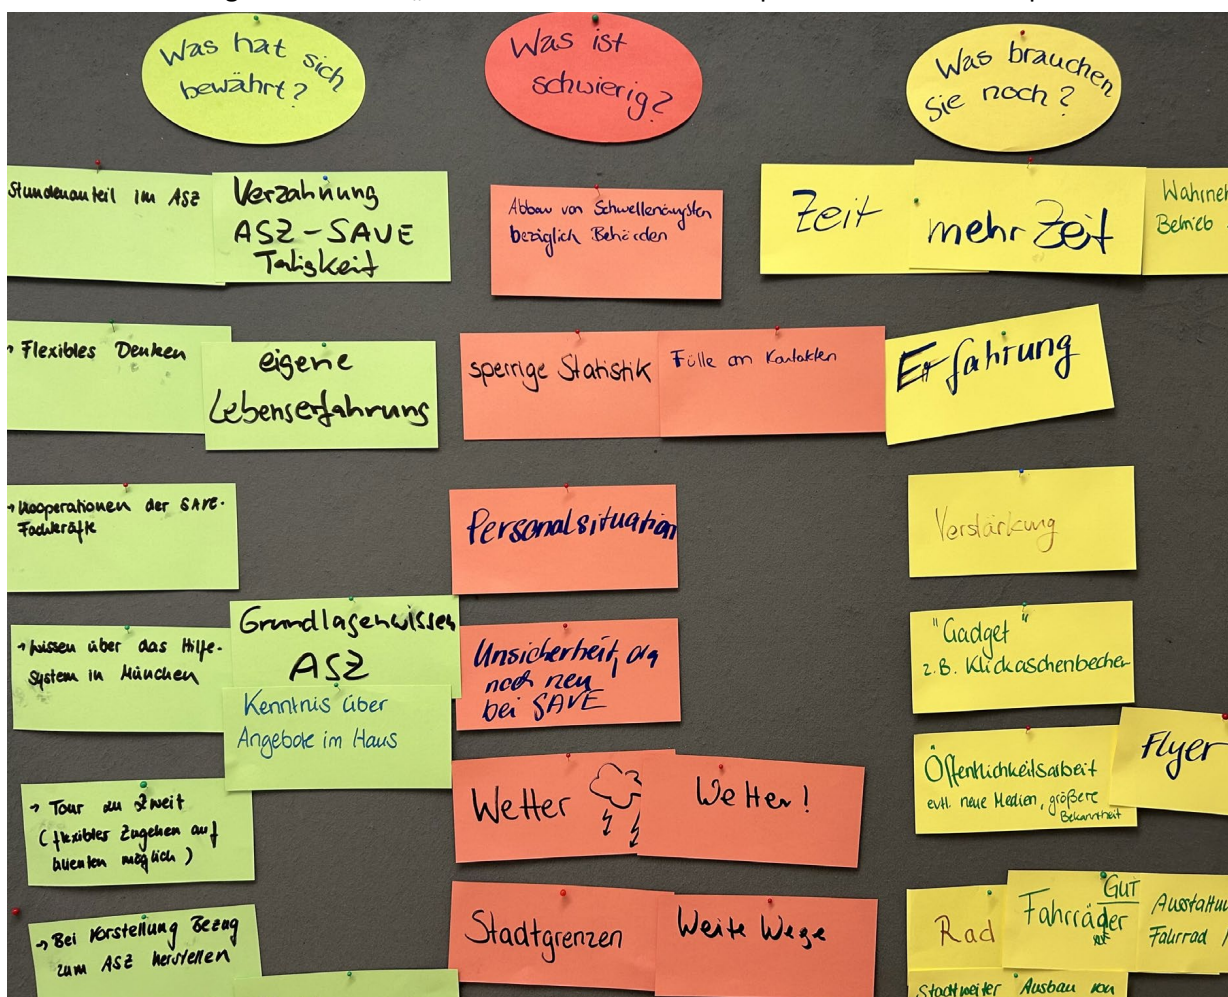 Was hat sich
bewährt?
Stundenanteil im ASZ
Verzahnung
ASZ-SAVE
Tätigkeit
Flexibles Denken
eigene
Lebenserfahrung
→ Kooperationen der SAVE-
Fachkräfte
→ Wissen über das Hilfe-
system in München
Grundlagenwissen
ASZ
Kenntnis über
Angebote im Haus
→ Tour zu Zweit
(flexibles Zugehen auf
Klienten möglich)
→ Bei Vorstellung Bezug
zum ASZ herstellen
Was ist
schwierig?
Abbau von Schwellenängsten
bezüglich Behörden
sperrige Statistik
Fülle an Kontakten
Personalsituation
Unsicherheit, da
noch neu
bei SAVE
Wetter
Wetter!
Stadtgrenzen
Weite Wege
Was brauchen
Sie noch?
Zeit
mehr Zeit
Betrieb
Erfahrung
Verstärkung
"Gadget"
z.B. Klickaschenbecher
Öffentlichkeitsarbeit
evtl. neue Medien, größere
Bekanntheit
Flyer
Rad
GUT
Fahrräder
Fahrrad
Stadtweiter Ausbau von